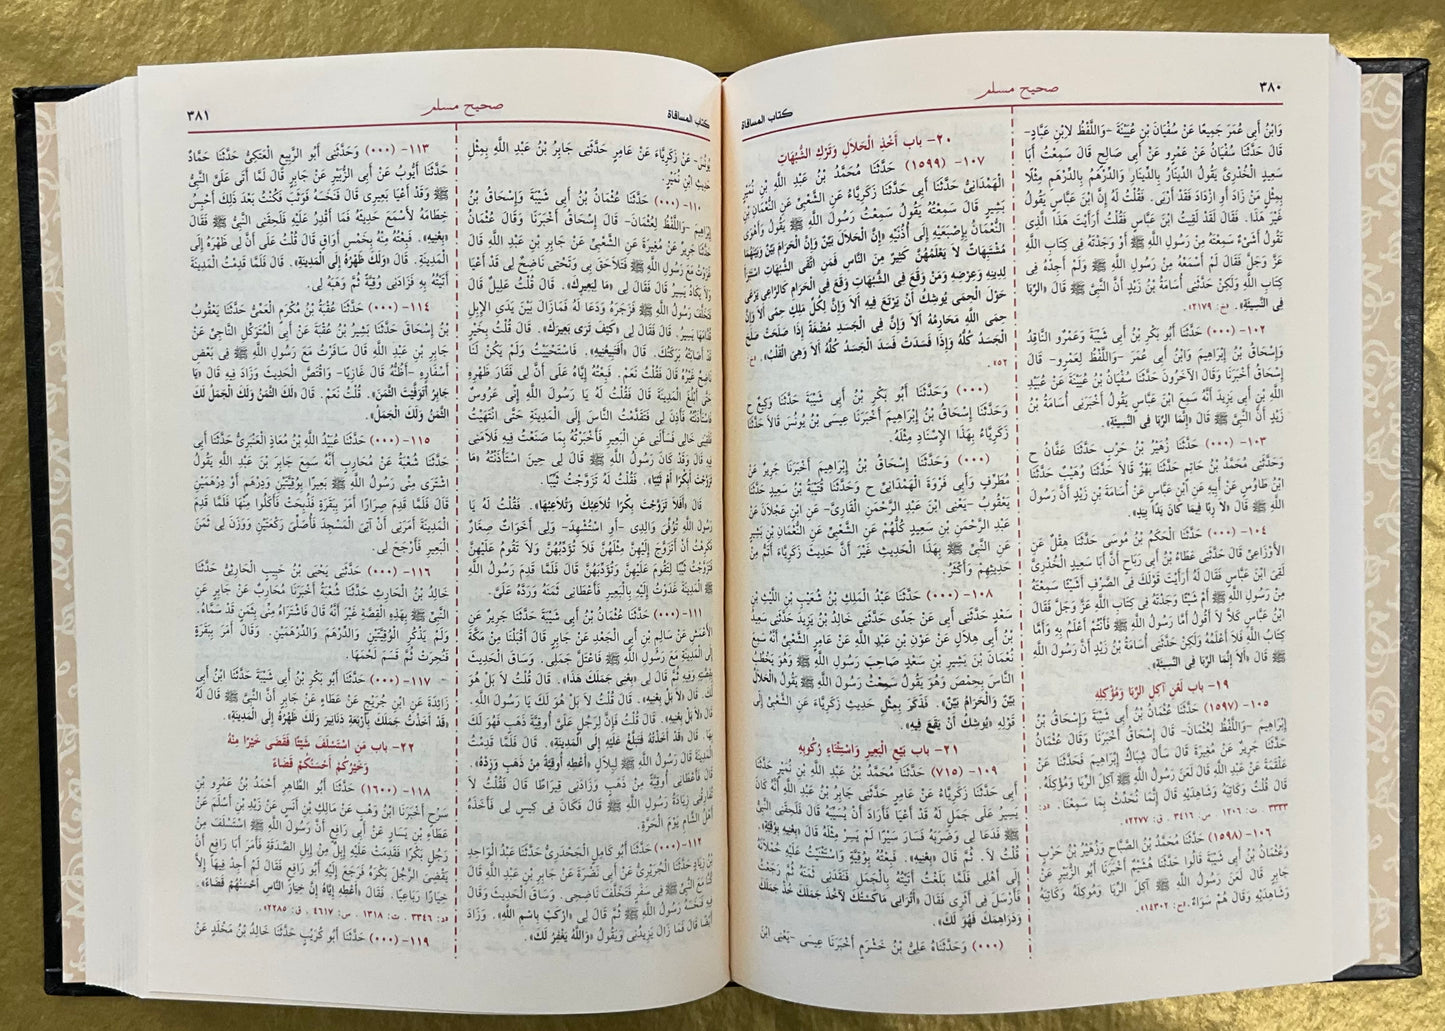 ٣٨٠
صحيح مسلم
كتاب المساقاة
وَابْنُ أَبِى عُمَرَ جَمِيعًا عَنْ سُفْيَانَ بْنِ عُيَيْنَةَ -وَاللَّفْظُ لِابْنِ عَبَّادٍ-
قَالَ حَدَّثَنَا سُفْيَانُ عَنْ عَمْرٍو عَنْ أَبِى صَالِحٍ قَالَ سَمِعْتُ أَبَا
سَعِيدٍ الْخُدْرِىَّ يَقُولُ الدِّينَارُ بِالدِّينَارِ وَالدِّرْهَمُ بِالدِّرْهَمِ مِثْلًا
بِمِثْلٍ مَنْ زَادَ أَوِ ازْدَادَ فَقَدْ أَرْبَى. فَقُلْتُ لَهُ إِنَّ ابْنَ عَبَّاسٍ يَقُولُ
غَيْرَ هَذَا. فَقَالَ لَقَدْ لَقِيتُ ابْنَ عَبَّاسٍ فَقُلْتُ أَرَأَيْتَ هَذَا الَّذِى
تَقُولُ أَشَىْءٌ سَمِعْتَهُ مِنْ رَسُولِ اللَّهِ ﷺ أَوْ وَجَدْتَهُ فِى كِتَابِ اللَّهِ
عَزَّ وَجَلَّ فَقَالَ لَمْ أَسْمَعْهُ مِنْ رَسُولِ اللَّهِ ﷺ وَلَمْ أَجِدْهُ فِى
كِتَابِ اللَّهِ وَلَكِنْ حَدَّثَنِى أُسَامَةُ بْنُ زَيْدٍ أَنَّ النَّبِىَّ ﷺ قَالَ «الرِّبَا
فِى النَّسِيئَةِ». «خ: ٢١٧٩».
١٠٢- (٠٠٠) حَدَّثَنَا أَبُو بَكْرِ بْنُ أَبِى شَيْبَةَ وَعَمْرٌو النَّاقِدُ
وَإِسْحَاقُ بْنُ إِبْرَاهِيمَ وَابْنُ أَبِى عُمَرَ -وَاللَّفْظُ لِعَمْرٍو- قَالَ
إِسْحَاقُ أَخْبَرَنَا وَقَالَ الآخَرُونَ حَدَّثَنَا سُفْيَانُ بْنُ عُيَيْنَةَ عَنْ عُبَيْدِ
اللَّهِ بْنِ أَبِى يَزِيدَ أَنَّهُ سَمِعَ ابْنَ عَبَّاسٍ يَقُولُ أَخْبَرَنِى أُسَامَةُ بْنُ
زَيْدٍ أَنَّ النَّبِىَّ ﷺ قَالَ «إِنَّمَا الرِّبَا فِى النَّسِيئَةِ».
١٠٣- (٠٠٠) حَدَّثَنَا زُهَيْرُ بْنُ حَرْبٍ حَدَّثَنَا عَفَّانُ ح
وَحَدَّثَنِى مُحَمَّدُ بْنُ حَاتِمٍ حَدَّثَنَا بَهْزٌ قَالَا حَدَّثَنَا وُهَيْبٌ حَدَّثَنَا
ابْنُ طَاوُسٍ عَنْ أَبِيهِ عَنِ ابْنِ عَبَّاسٍ عَنْ أُسَامَةَ بْنِ زَيْدٍ أَنَّ رَسُولَ
اللَّهِ ﷺ قَالَ «لَا رِبًا فِيمَا كَانَ يَدًا بِيَدٍ».
١٠٤- (٠٠٠) حَدَّثَنَا الْحَكَمُ بْنُ مُوسَى حَدَّثَنَا هِقْلٌ عَنِ
الأَوْزَاعِىِّ قَالَ حَدَّثَنِى عَطَاءُ بْنُ أَبِى رَبَاحٍ أَنَّ أَبَا سَعِيدٍ الْخُدْرِىَّ
لَقِىَ ابْنَ عَبَّاسٍ فَقَالَ لَهُ أَرَأَيْتَ قَوْلَكَ فِى الصَّرْفِ أَشَيْئًا سَمِعْتَهُ
مِنْ رَسُولِ اللَّهِ ﷺ أَمْ شَيْئًا وَجَدْتَهُ فِى كِتَابِ اللَّهِ عَزَّ وَجَلَّ فَقَالَ
ابْنُ عَبَّاسٍ كَلَّا لَا أَقُولُ أَمَّا رَسُولُ اللَّهِ ﷺ فَأَنْتُمْ أَعْلَمُ بِهِ وَأَمَّا
كِتَابُ اللَّهِ فَلَا أَعْلَمُهُ وَلَكِنْ حَدَّثَنِى أُسَامَةُ بْنُ زَيْدٍ أَنَّ رَسُولَ اللَّهِ
ﷺ قَالَ «أَلَا إِنَّمَا الرِّبَا فِى النَّسِيئَةِ».
١٩- باب لَعْنِ آكِلِ الرِّبَا وَمُؤْكِلِهِ
١٠٥- (١٥٩٧) حَدَّثَنَا عُثْمَانُ بْنُ أَبِى شَيْبَةَ وَإِسْحَاقُ بْنُ
إِبْرَاهِيمَ -وَاللَّفْظُ لِعُثْمَانَ- قَالَ إِسْحَاقُ أَخْبَرَنَا وَقَالَ عُثْمَانُ
حَدَّثَنَا جَرِيرٌ عَنْ مُغِيرَةَ قَالَ سَأَلَ شِبَاكٌ إِبْرَاهِيمَ فَحَدَّثَنَا عَنْ
عَلْقَمَةَ عَنْ عَبْدِ اللَّهِ قَالَ لَعَنَ رَسُولُ اللَّهِ ﷺ آكِلَ الرِّبَا وَمُؤْكِلَهُ.
قَالَ قُلْتُ وَكَاتِبَهُ وَشَاهِدَيْهِ قَالَ إِنَّمَا نُحَدِّثُ بِمَا سَمِعْنَا. «د:
٣٣٣٣ ت: ١٢٠٦ س: ٣٤١٦ ق: ٢٢٧٧».
١٠٦- (١٥٩٨) حَدَّثَنَا مُحَمَّدُ بْنُ الصَّبَّاحِ وَزُهَيْرُ بْنُ حَرْبٍ
وَعُثْمَانُ بْنُ أَبِى شَيْبَةَ قَالُوا حَدَّثَنَا هُشَيْمٌ أَخْبَرَنَا أَبُو الزُّبَيْرِ عَنْ
جَابِرٍ قَالَ لَعَنَ رَسُولُ اللَّهِ ﷺ آكِلَ الرِّبَا وَمُوكِلَهُ وَكَاتِبَهُ
وَشَاهِدَيْهِ وَقَالَ هُمْ سَوَاءٌ. «ح: ١٤٣٠٢».
٢٠- باب أَخْذِ الْحَلَالِ وَتَرْكِ الشُّبُهَاتِ
١٠٧- (١٥٩٩) حَدَّثَنَا مُحَمَّدُ بْنُ عَبْدِ اللَّهِ بْنِ نُمَيْرٍ
الْهَمْدَانِىُّ حَدَّثَنَا أَبِى حَدَّثَنَا زَكَرِيَّاءُ عَنِ الشَّعْبِىِّ عَنِ النُّعْمَانِ بْنِ
بَشِيرٍ قَالَ سَمِعْتُهُ يَقُولُ سَمِعْتُ رَسُولَ اللَّهِ ﷺ يَقُولُ وَأَهْوَى
النُّعْمَانُ بِإِصْبَعَيْهِ إِلَى أُذُنَيْهِ «إِنَّ الْحَلَالَ بَيِّنٌ وَإِنَّ الْحَرَامَ بَيِّنٌ وَبَيْنَهُمَا
مُشْتَبِهَاتٌ لَا يَعْلَمُهُنَّ كَثِيرٌ مِنَ النَّاسِ فَمَنِ اتَّقَى الشُّبُهَاتِ اسْتَبْرَأَ
لِدِينِهِ وَعِرْضِهِ وَمَنْ وَقَعَ فِى الشُّبُهَاتِ وَقَعَ فِى الْحَرَامِ كَالرَّاعِى يَرْعَى
حَوْلَ الْحِمَى يُوشِكُ أَنْ يَرْتَعَ فِيهِ أَلَا وَإِنَّ لِكُلِّ مَلِكٍ حِمًى أَلَا وَإِنَّ
حِمَى اللَّهِ مَحَارِمُهُ أَلَا وَإِنَّ فِى الْجَسَدِ مُضْغَةً إِذَا صَلَحَتْ صَلَحَ
الْجَسَدُ كُلُّهُ وَإِذَا فَسَدَتْ فَسَدَ الْجَسَدُ كُلُّهُ أَلَا وَهِىَ الْقَلْبُ». «خ:
٥٢».
(٠٠٠) وَحَدَّثَنَا أَبُو بَكْرِ بْنُ أَبِى شَيْبَةَ حَدَّثَنَا وَكِيعٌ ح
وَحَدَّثَنَا إِسْحَاقُ بْنُ إِبْرَاهِيمَ أَخْبَرَنَا عِيسَى بْنُ يُونُسَ قَالَا حَدَّثَنَا
زَكَرِيَّاءُ بِهَذَا الإِسْنَادِ مِثْلَهُ.
(٠٠٠) وَحَدَّثَنَا إِسْحَاقُ بْنُ إِبْرَاهِيمَ أَخْبَرَنَا جَرِيرٌ عَنْ
مُطَرِّفٍ وَأَبِى فَرْوَةَ الْهَمْدَانِىِّ ح وَحَدَّثَنَا قُتَيْبَةُ بْنُ سَعِيدٍ حَدَّثَنَا
يَعْقُوبُ -يَعْنِى ابْنَ عَبْدِ الرَّحْمَنِ الْقَارِىَّ- عَنِ ابْنِ عَجْلَانَ عَنْ
عَبْدِ الرَّحْمَنِ بْنِ سَعِيدٍ كُلُّهُمْ عَنِ الشَّعْبِىِّ عَنِ النُّعْمَانِ بْنِ بَشِيرٍ
عَنِ النَّبِىِّ ﷺ بِهَذَا الْحَدِيثِ غَيْرَ أَنَّ حَدِيثَ زَكَرِيَّاءَ أَتَمُّ مِنْ
حَدِيثِهِمْ وَأَكْثَرُ.
١٠٨- (٠٠٠) حَدَّثَنَا عَبْدُ الْمَلِكِ بْنُ شُعَيْبِ بْنِ اللَّيْثِ بْنِ
سَعْدٍ حَدَّثَنِى أَبِى عَنْ جَدِّى حَدَّثَنِى خَالِدُ بْنُ يَزِيدَ حَدَّثَنِى سَعِيدُ
بْنُ أَبِى هِلَالٍ عَنْ عَوْنِ بْنِ عَبْدِ اللَّهِ عَنْ عَامِرٍ الشَّعْبِىِّ أَنَّهُ سَمِعَ
نُعْمَانَ بْنَ بَشِيرِ بْنِ سَعْدٍ صَاحِبَ رَسُولِ اللَّهِ ﷺ وَهُوَ يَخْطُبُ
النَّاسَ بِحِمْصَ وَهُوَ يَقُولُ سَمِعْتُ رَسُولَ اللَّهِ ﷺ يَقُولُ «الْحَلَالُ
بَيِّنٌ وَالْحَرَامُ بَيِّنٌ». فَذَكَرَ بِمِثْلِ حَدِيثِ زَكَرِيَّاءَ عَنِ الشَّعْبِىِّ إِلَى
قَوْلِهِ «يُوشِكُ أَنْ يَقَعَ فِيهِ».
٢١- باب بَيْعِ الْبَعِيرِ وَاسْتِثْنَاءِ رُكُوبِهِ
١٠٩- (٧١٥) حَدَّثَنَا مُحَمَّدُ بْنُ عَبْدِ اللَّهِ بْنِ نُمَيْرٍ حَدَّثَنَا
أَبِى حَدَّثَنَا زَكَرِيَّاءُ عَنْ عَامِرٍ حَدَّثَنِى جَابِرُ بْنُ عَبْدِ اللَّهِ أَنَّهُ كَانَ
يَسِيرُ عَلَى جَمَلٍ لَهُ قَدْ أَعْيَا فَأَرَادَ أَنْ يُسَيِّبَهُ قَالَ فَلَحِقَنِى النَّبِىُّ
ﷺ فَدَعَا لِى وَضَرَبَهُ فَسَارَ سَيْرًا لَمْ يَسِرْ مِثْلَهُ قَالَ «بِعْنِيهِ بِوُقِيَّةٍ».
قُلْتُ لَا. ثُمَّ قَالَ «بِعْنِيهِ». فَبِعْتُهُ بِوُقِيَّةٍ وَاسْتَثْنَيْتُ عَلَيْهِ حُمْلَانَهُ
إِلَى أَهْلِى فَلَمَّا بَلَغْتُ أَتَيْتُهُ بِالْجَمَلِ فَنَقَدَنِى ثَمَنَهُ ثُمَّ رَجَعْتُ
فَأَرْسَلَ فِى أَثَرِى فَقَالَ «أَتُرَانِى مَاكَسْتُكَ لآخُذَ جَمَلَكَ خُذْ جَمَلَكَ
وَدَرَاهِمَكَ فَهُوَ لَكَ».
(٠٠٠) وَحَدَّثَنَاهُ عَلِىُّ بْنُ خَشْرَمٍ أَخْبَرَنَا عِيسَى -يَعْنِى ابْنَ
كتاب المساقاة
صحيح مسلم
٣٨١
يُونُسَ- عَنْ زَكَرِيَّاءَ عَنْ عَامِرٍ حَدَّثَنِى جَابِرُ بْنُ عَبْدِ اللَّهِ بِمِثْلِ
حَدِيثِ ابْنِ نُمَيْرٍ.
١١٠- (٠٠٠) حَدَّثَنَا عُثْمَانُ بْنُ أَبِى شَيْبَةَ وَإِسْحَاقُ بْنُ
إِبْرَاهِيمَ -وَاللَّفْظُ لِعُثْمَانَ- قَالَ إِسْحَاقُ أَخْبَرَنَا وَقَالَ عُثْمَانُ
حَدَّثَنَا جَرِيرٌ عَنْ مُغِيرَةَ عَنِ الشَّعْبِىِّ عَنْ جَابِرِ بْنِ عَبْدِ اللَّهِ قَالَ
غَزَوْتُ مَعَ رَسُولِ اللَّهِ ﷺ فَتَلَاحَقَ بِى وَتَحْتِى نَاضِحٌ لِى قَدْ أَعْيَا
وَلَا يَكَادُ يَسِيرُ قَالَ فَقَالَ لِى «مَا لِبَعِيرِكَ». قَالَ قُلْتُ عَلِيلٌ قَالَ
فَتَخَلَّفَ رَسُولُ اللَّهِ ﷺ فَزَجَرَهُ وَدَعَا لَهُ فَمَازَالَ بَيْنَ يَدَىِ الإِبِلِ
قُدَّامَهَا يَسِيرُ. قَالَ فَقَالَ لِى «كَيْفَ تَرَى بَعِيرَكَ». قَالَ قُلْتُ بِخَيْرٍ
قَدْ أَصَابَتْهُ بَرَكَتُكَ. قَالَ «أَفَتَبِيعُنِيهِ». فَاسْتَحْيَيْتُ وَلَمْ يَكُنْ لَنَا
نَاضِحٌ غَيْرُهُ قَالَ فَقُلْتُ نَعَمْ. فَبِعْتُهُ إِيَّاهُ عَلَى أَنَّ لِى فَقَارَ ظَهْرِهِ
حَتَّى أَبْلُغَ الْمَدِينَةَ قَالَ فَقُلْتُ لَهُ يَا رَسُولَ اللَّهِ إِنِّى عَرُوسٌ
فَاسْتَأْذَنْتُهُ فَأَذِنَ لِى فَتَقَدَّمْتُ النَّاسَ إِلَى الْمَدِينَةِ حَتَّى انْتَهَيْتُ
فَلَقِيَنِى خَالِى فَسَأَلَنِى عَنِ الْبَعِيرِ فَأَخْبَرْتُهُ بِمَا صَنَعْتُ فِيهِ فَلَامَنِى
فِيهِ قَالَ وَقَدْ كَانَ رَسُولُ اللَّهِ ﷺ قَالَ لِى حِينَ اسْتَأْذَنْتُهُ «مَا
تَزَوَّجْتَ أَبِكْرًا أَمْ ثَيِّبًا». فَقُلْتُ لَهُ تَزَوَّجْتُ ثَيِّبًا.
قَالَ «أَفَلَا تَزَوَّجْتَ بِكْرًا تُلَاعِبُكَ وَتُلَاعِبُهَا». فَقُلْتُ لَهُ يَا
رَسُولَ اللَّهِ تُوُفِّىَ وَالِدِى -أَوِ اسْتُشْهِدَ- وَلِى أَخَوَاتٌ صِغَارٌ
فَكَرِهْتُ أَنْ أَتَزَوَّجَ إِلَيْهِنَّ مِثْلَهُنَّ فَلَا تُؤَدِّبُهُنَّ وَلَا تَقُومُ عَلَيْهِنَّ
فَتَزَوَّجْتُ ثَيِّبًا لِتَقُومَ عَلَيْهِنَّ وَتُؤَدِّبَهُنَّ قَالَ فَلَمَّا قَدِمَ رَسُولُ اللَّهِ
ﷺ الْمَدِينَةَ غَدَوْتُ إِلَيْهِ بِالْبَعِيرِ فَأَعْطَانِى ثَمَنَهُ وَرَدَّهُ عَلَىَّ.
١١١- (٠٠٠) حَدَّثَنَا عُثْمَانُ بْنُ أَبِى شَيْبَةَ حَدَّثَنَا جَرِيرٌ عَنِ
الأَعْمَشِ عَنْ سَالِمِ بْنِ أَبِى الْجَعْدِ عَنْ جَابِرٍ قَالَ أَقْبَلْنَا مِنْ مَكَّةَ
إِلَى الْمَدِينَةِ مَعَ رَسُولِ اللَّهِ ﷺ فَاعْتَلَّ جَمَلِى. وَسَاقَ الْحَدِيثَ
بِقِصَّتِهِ وَفِيهِ ثُمَّ قَالَ لِى «بِعْنِى جَمَلَكَ هَذَا». قَالَ قُلْتُ لَا بَلْ هُوَ
لَكَ. قَالَ «لَا بَلْ بِعْنِيهِ». قَالَ قُلْتُ لَا بَلْ هُوَ لَكَ يَا رَسُولَ اللَّهِ.
قَالَ «لَا بَلْ بِعْنِيهِ». قَالَ قُلْتُ فَإِنَّ لِرَجُلٍ عَلَىَّ أُوقِيَّةَ ذَهَبٍ فَهُوَ لَكَ
بِهَا. قَالَ «قَدْ أَخَذْتُهُ فَتَبَلَّغْ عَلَيْهِ إِلَى الْمَدِينَةِ». قَالَ فَلَمَّا قَدِمْتُ
الْمَدِينَةَ قَالَ رَسُولُ اللَّهِ ﷺ لِبِلَالٍ «أَعْطِهِ أُوقِيَّةً مِنْ ذَهَبٍ وَزِدْهُ».
قَالَ فَأَعْطَانِى أُوقِيَّةً مِنْ ذَهَبٍ وَزَادَنِى قِيرَاطًا قَالَ فَقُلْتُ لَا
تُفَارِقُنِى زِيَادَةُ رَسُولِ اللَّهِ ﷺ قَالَ فَكَانَ فِى كِيسٍ لِى فَأَخَذَهُ
أَهْلُ الشَّامِ يَوْمَ الْحَرَّةِ.
١١٢- (٠٠٠) حَدَّثَنَا أَبُو كَامِلٍ الْجَحْدَرِىُّ حَدَّثَنَا عَبْدُ الْوَاحِدِ
بْنُ زِيَادٍ حَدَّثَنَا الْجُرَيْرِىُّ عَنْ أَبِى نَضْرَةَ عَنْ جَابِرِ بْنِ عَبْدِ اللَّهِ قَالَ
كُنَّا مَعَ النَّبِىِّ ﷺ فِى سَفَرٍ فَتَخَلَّفَ نَاضِحِى. وَسَاقَ الْحَدِيثَ وَقَالَ
فِيهِ فَنَخَسَهُ رَسُولُ اللَّهِ ﷺ ثُمَّ قَالَ لِى «ارْكَبْ بِاسْمِ اللَّهِ». وَزَادَ
أَيْضًا قَالَ فَمَا زَالَ يَزِيدُنِى وَيَقُولُ «وَاللَّهُ يَغْفِرُ لَكَ».
١١٣- (٠٠٠) وَحَدَّثَنِى أَبُو الرَّبِيعِ الْعَتَكِىُّ حَدَّثَنَا حَمَّادٌ
حَدَّثَنَا أَيُّوبُ عَنْ أَبِى الزُّبَيْرِ عَنْ جَابِرٍ قَالَ لَمَّا أَتَى عَلَىَّ النَّبِىُّ
ﷺ وَقَدْ أَعْيَا بَعِيرِى قَالَ فَنَخَسَهُ فَوَثَبَ فَكُنْتُ بَعْدَ ذَلِكَ أَحْبِسُ
خِطَامَهُ لأَسْمَعَ حَدِيثَهُ فَمَا أَقْدِرُ عَلَيْهِ فَلَحِقَنِى النَّبِىُّ ﷺ فَقَالَ
«بِعْنِيهِ». فَبِعْتُهُ مِنْهُ بِخَمْسِ أَوَاقٍ قَالَ قُلْتُ عَلَى أَنَّ لِى ظَهْرَهُ إِلَى
الْمَدِينَةِ. قَالَ «وَلَكَ ظَهْرُهُ إِلَى الْمَدِينَةِ». قَالَ فَلَمَّا قَدِمْتُ الْمَدِينَةَ
أَتَيْتُهُ بِهِ فَزَادَنِى وُقِيَّةً ثُمَّ وَهَبَهُ لِى.
١١٤- (٠٠٠) حَدَّثَنَا عُقْبَةُ بْنُ مُكْرَمٍ الْعَمِّىُّ حَدَّثَنَا يَعْقُوبُ
بْنُ إِسْحَاقَ حَدَّثَنَا بَشِيرُ بْنُ عُقْبَةَ عَنْ أَبِى الْمُتَوَكِّلِ النَّاجِىِّ عَنْ
جَابِرِ بْنِ عَبْدِ اللَّهِ قَالَ سَافَرْتُ مَعَ رَسُولِ اللَّهِ ﷺ فِى بَعْضِ
أَسْفَارِهِ -أَظُنُّهُ قَالَ غَازِيًا- وَاقْتَصَّ الْحَدِيثَ وَزَادَ فِيهِ قَالَ «يَا
جَابِرُ أَتَوَفَّيْتَ الثَّمَنَ». قُلْتُ نَعَمْ. قَالَ «لَكَ الثَّمَنُ وَلَكَ الْجَمَلُ لَكَ
الثَّمَنُ وَلَكَ الْجَمَلُ».
١١٥- (٠٠٠) حَدَّثَنَا عُبَيْدُ اللَّهِ بْنُ مُعَاذٍ الْعَنْبَرِىُّ حَدَّثَنَا أَبِى
حَدَّثَنَا شُعْبَةُ عَنْ مُحَارِبٍ أَنَّهُ سَمِعَ جَابِرَ بْنَ عَبْدِ اللَّهِ يَقُولُ
اشْتَرَى مِنِّى رَسُولُ اللَّهِ ﷺ بَعِيرًا بِوُقِيَّتَيْنِ وَدِرْهَمٍ أَوْ دِرْهَمَيْنِ
قَالَ فَلَمَّا قَدِمَ صِرَارًا أَمَرَ بِبَقَرَةٍ فَذُبِحَتْ فَأَكَلُوا مِنْهَا فَلَمَّا قَدِمَ
الْمَدِينَةَ أَمَرَنِى أَنْ آتِىَ الْمَسْجِدَ فَأُصَلِّىَ رَكْعَتَيْنِ وَوَزَنَ لِى ثَمَنَ
الْبَعِيرِ فَأَرْجَحَ لِى.
١١٦- (٠٠٠) حَدَّثَنِى يَحْيَى بْنُ حَبِيبٍ الْحَارِثِىُّ حَدَّثَنَا
خَالِدُ بْنُ الْحَارِثِ حَدَّثَنَا شُعْبَةُ أَخْبَرَنَا مُحَارِبٌ عَنْ جَابِرٍ عَنِ
النَّبِىِّ ﷺ بِهَذِهِ الْقِصَّةِ غَيْرَ أَنَّهُ قَالَ فَاشْتَرَاهُ مِنِّى بِثَمَنٍ قَدْ سَمَّاهُ.
وَلَمْ يَذْكُرِ الْوُقِيَّتَيْنِ وَالدِّرْهَمَ وَالدِّرْهَمَيْنِ. وَقَالَ أَمَرَ بِبَقَرَةٍ
فَنُحِرَتْ ثُمَّ قَسَمَ لَحْمَهَا.
١١٧- (٠٠٠) حَدَّثَنَا أَبُو بَكْرِ بْنُ أَبِى شَيْبَةَ حَدَّثَنَا ابْنُ أَبِى
زَائِدَةَ عَنِ ابْنِ جُرَيْجٍ عَنْ عَطَاءٍ عَنْ جَابِرٍ أَنَّ النَّبِىَّ ﷺ قَالَ لَهُ
«قَدْ أَخَذْتُ جَمَلَكَ بِأَرْبَعَةِ دَنَانِيرَ وَلَكَ ظَهْرُهُ إِلَى الْمَدِينَةِ».
٢٢- باب مَنِ اسْتَسْلَفَ شَيْئًا فَقَضَى خَيْرًا مِنْهُ
وَخَيْرُكُمْ أَحْسَنُكُمْ قَضَاءً
١١٨- (١٦٠٠) حَدَّثَنَا أَبُو الطَّاهِرِ أَحْمَدُ بْنُ عَمْرِو بْنِ
سَرْحٍ أَخْبَرَنَا ابْنُ وَهْبٍ عَنْ مَالِكِ بْنِ أَنَسٍ عَنْ زَيْدِ بْنِ أَسْلَمَ عَنْ
عَطَاءِ بْنِ يَسَارٍ عَنْ أَبِى رَافِعٍ أَنَّ رَسُولَ اللَّهِ ﷺ اسْتَسْلَفَ مِنْ
رَجُلٍ بَكْرًا فَقَدِمَتْ عَلَيْهِ إِبِلٌ مِنْ إِبِلِ الصَّدَقَةِ فَأَمَرَ أَبَا رَافِعٍ أَنْ
يَقْضِىَ الرَّجُلَ بَكْرَهُ فَرَجَعَ إِلَيْهِ أَبُو رَافِعٍ فَقَالَ لَمْ أَجِدْ فِيهَا إِلَّا
خِيَارًا رَبَاعِيًا. فَقَالَ «أَعْطِهِ إِيَّاهُ إِنَّ خِيَارَ النَّاسِ أَحْسَنُهُمْ قَضَاءً».
«د: ٣٣٤٦ ت: ١٣١٨ س: ٤٦١٧ ق: ٢٢٨٥».
١١٩- (٠٠٠) حَدَّثَنَا أَبُو كُرَيْبٍ حَدَّثَنَا خَالِدُ بْنُ مَخْلَدٍ عَنْ